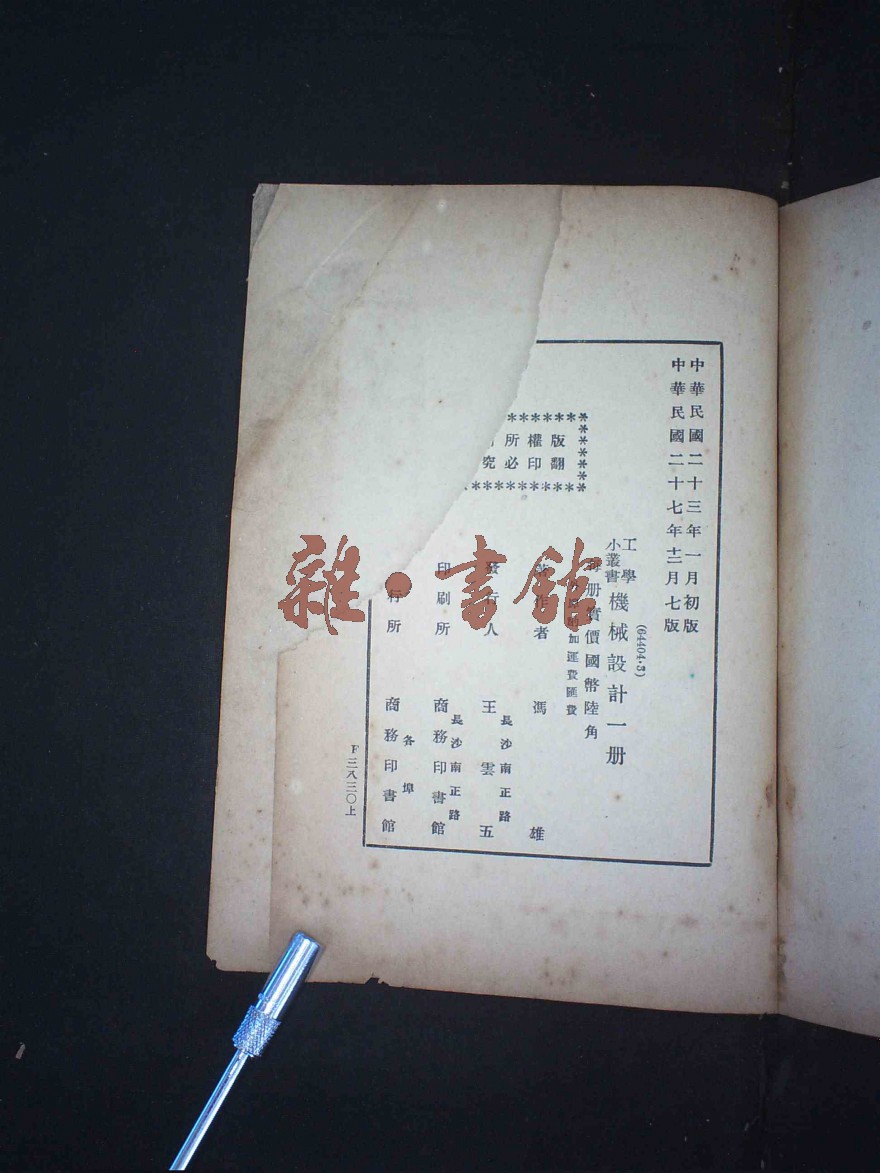 中華民國二十三年一月初版
中華民國二十七年十二月七版
(64404·3)
工學小叢書
機械設計一册
每册實價國幣陸角
加運費匯費
著作者 馮雄
發行人 王雲五
長沙南正路
印刷所 商務印書館
長沙南正路
行所 商務印書館
各埠
版權所
翻印必究
F三八三〇上
雜·書館